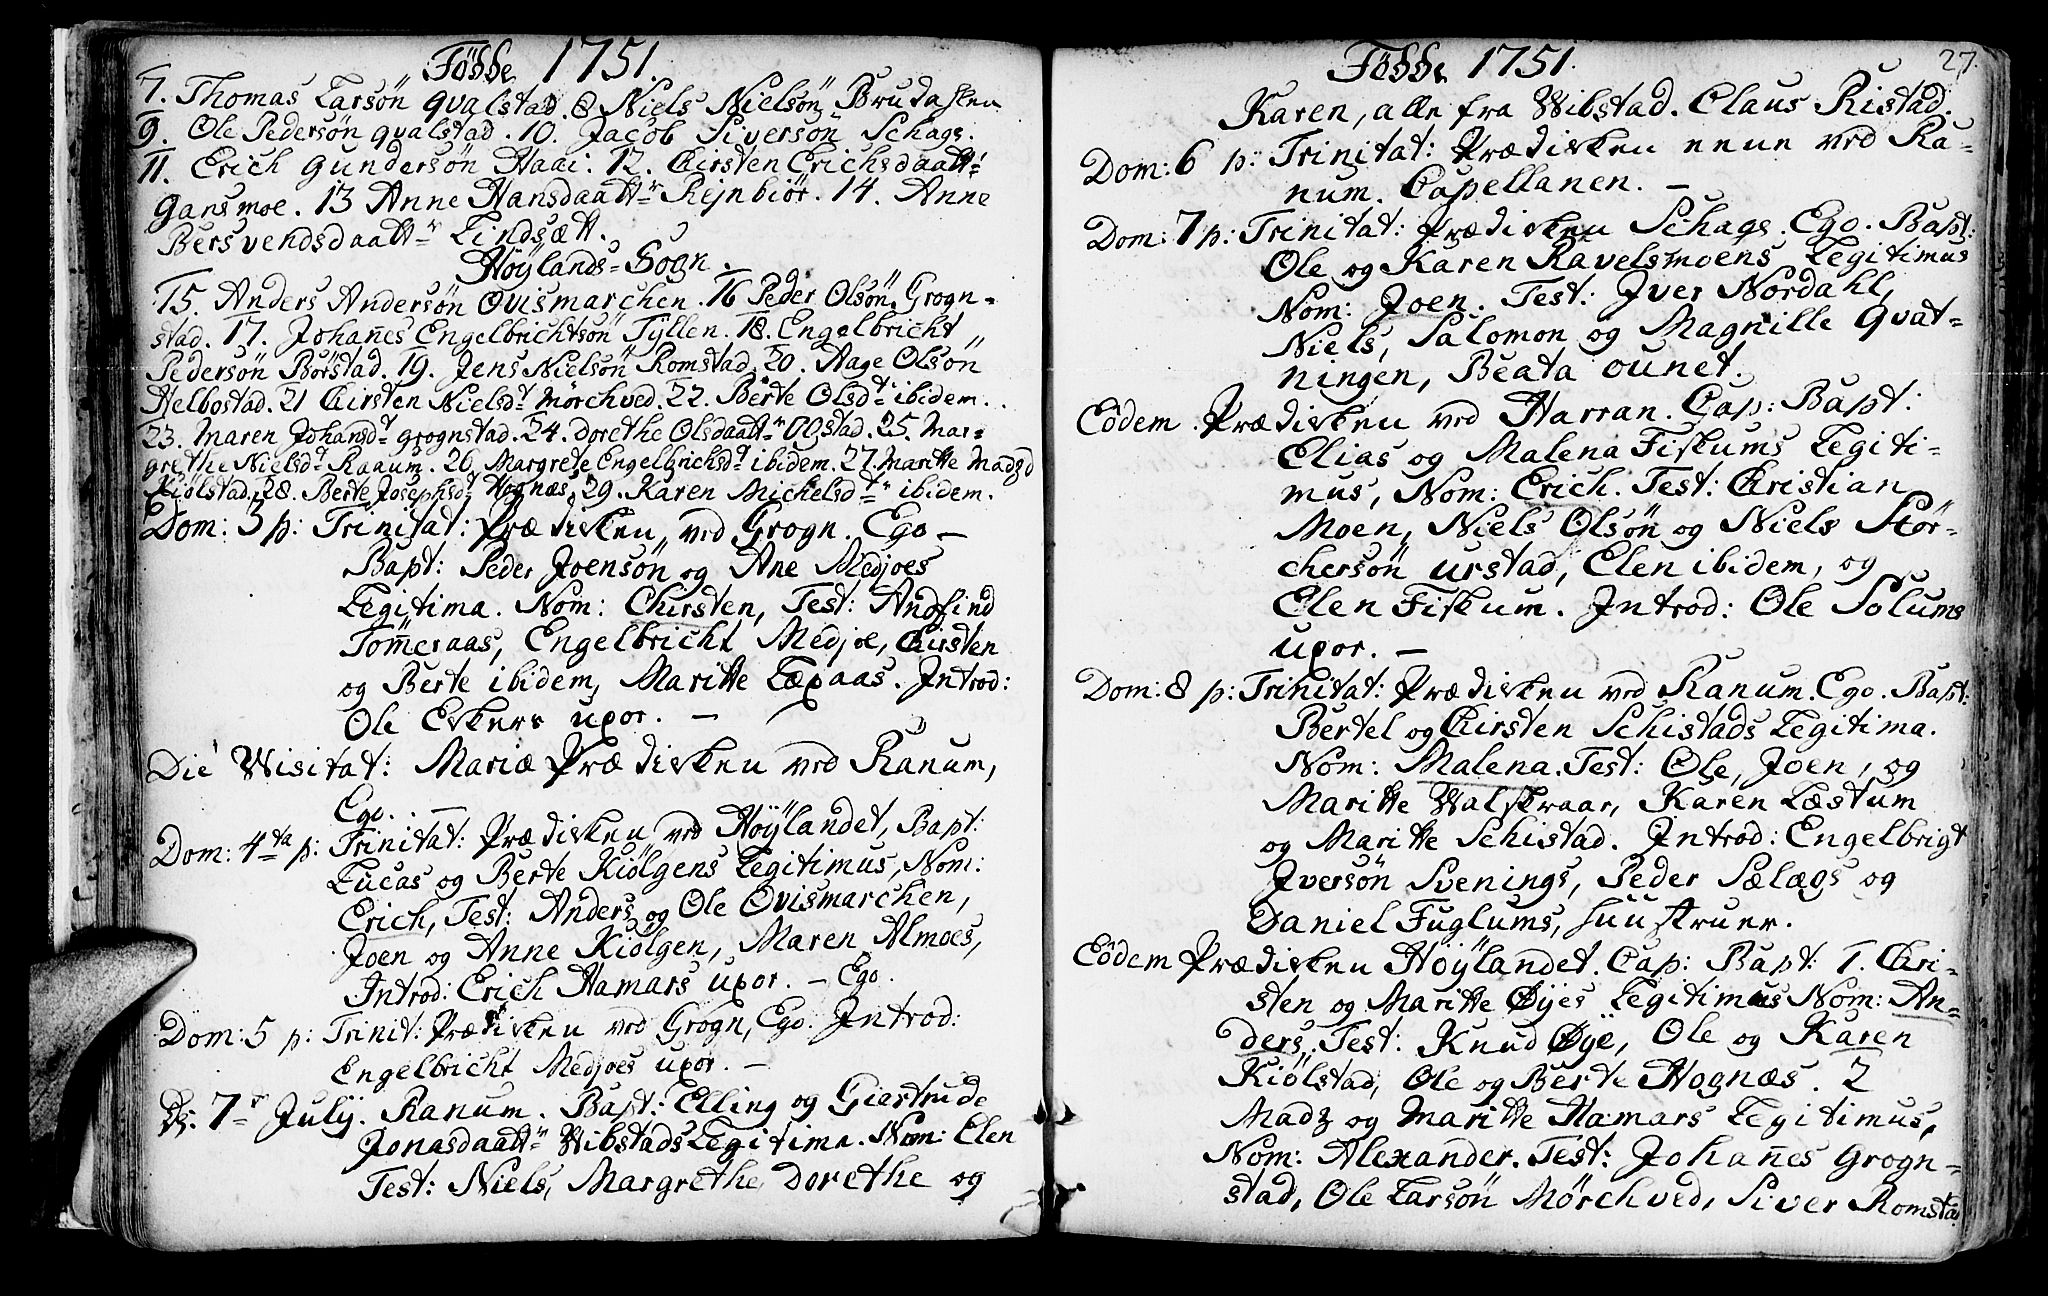 Födde 1751.
7. Thomas Larsön Qvalstad. 8 Niels Nielsön Brudasken
9. Ole Pedersön Qvalstad. 10. Jacob Siversön Schage.
11. Erich Gundersön Haai: 12. Chirsten Erichsdaattr
Gansmoe. 13 Anne Hansdaattr Reinbiör. 14. Anne
Bersvendsdaattr Lindsætt.
Höylands=Sogn.
15. Anders Andersön Qvismarchen. 16 Peder Olsön Grogn=
stad. 17. Johañes Engelbrichtsön Tÿllen. 18. Engelbricht
Pedersön Börstad. 19. Jens Nielsön Romstad. 20. Aage Olsön
Helbostad. 21 Chirsten Nielsdt Mörchved. 22. Berte Olsdt ibidem.
23. Maren Johansdt Grognstad. 24. Dorethe Olsdaattr OOstad. 25. Mar=
grethe Nielsdt Raaum. 26. Margrete Engelbrichsdt ibidem. 27. Maritte Madzd
Kiölstad. 28. Berte Josephsdt Hognæs. 29. Karen Michelsdtr ibidem.
Dom: 3 p: Trinitat: Prædisken ved Grogn. Ego —
Bapt: Peder Joensön og Ane Medjoes
Legitima. Nom: Chirsten, Test: Andfind
Tom̄eraas, Engelbricht Medjoe, Chirsten
og Berte ibidem, Maritte Læxaas. Introd:
Ole Eskers uxor. —
Die Wisitat: Mariæ Prædisken ved Ranum,
Ego. —
Dom: 4ta p: Trinitat: Prædisken ved Höÿlandet, Bapt:
Lucas og Berte Kiölgens Legitimus, Nom:
Erich, Test: Anders og Ole Qvismarchen,
Joen og Anne Kiölgen, Maren Almoes,
Introd: Erich Hamars uxor. — Ego.
Dom: 5 p: Trinit: Prædisken ved Grogn, Ego. Introd:
Engelbricht Medjoes uxor. —
D: 7r Julij. Ranum. Bapt: Elling og Giertrude
Jonasdaattr Wibstads Legitima. Nom: Elen
Test: Niels, Margrethe, Dorethe og
27.
Födde 1751.
Karen, alle fra Wibstad. Claus Ristad.
Dom: 6 p: Trinitat: Prædisken neun ved Ra=
num. Capellanen. —
Dom: 7 p: Trinitat: Prædisken Schage. Ego. Bapt:
Ole og Karen Ravelsmoens Legitimus
Nom: Joen. Test: Jver Nordahl,
Niels, Salomon og Magnille Qvat=
ningen, Beata ounet.
Eodem Prædisken ved Harran. Cap: Bapt:
Elias og Malena Fiskums Legiti=
mus, Nom: Erich. Test: Christian
Moen, Niels Olsön og Niels Stör=
chersön Urstad, Elen ibidem, og
Elen Fiskum. Introd: Ole Solums
uxor. —
Dom: 8 p: Trinitat: Prædisken ved Ranum. Ego. Bapt:
Bertel og Chirsten Schistads Legitima.
Nom: Malena. Test: Ole, Joen, og
Maritte Walskraar, Karen Læstum
og Maritte Schistad. Introd: Engelbrigt
Jversön Svenings, Peder Sælægs og
Daniel Fuglums, huustruer.
Eodem Prædisken Höÿlandet. Cap: Bapt: 1. Chri=
sten og Maritte Øÿes Legitimus Nom: An=
ders, Test: Knud Øÿe, Ole og Karen
Kiölstad, Ole og Berte Hognæs. 2
Madz og Maritte Hamars Legitimus,
Nom: Alexander. Test: Johañes Grogn=
stad, Ole Larsön Mörchved, Siver Romstad